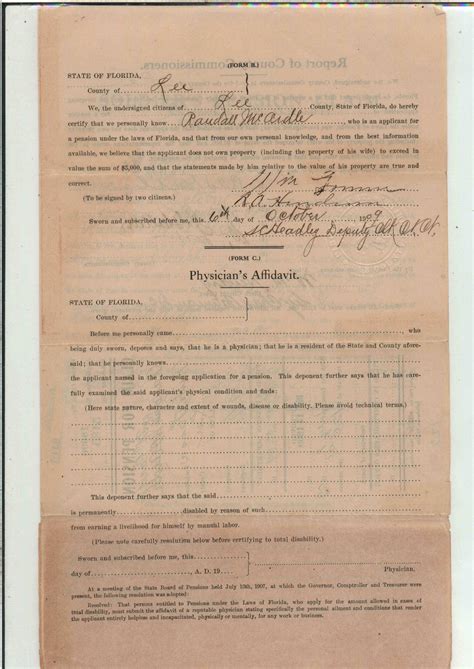 Report of County Commissioners.
(FORM B.)
STATE OF FLORIDA,
County of Lee
We, the undersigned citizens of Lee County, State of Florida, do hereby
certify that we personally know Randall McArdle who is an applicant for
a pension under the laws of Florida, and that from our own personal knowledge, and from the best information
available, we believe that the applicant does not own property (including the property of his wife) to exceed in
value the sum of $5,000, and that the statements made by him relative to the value of his property are true and
correct.
Wm
(To be signed by two citizens.) R.A. Henderson
Sworn and subscribed before me, this 6th day of October 1909
Deputy
(FORM C.)
Physician's Affidavit.
STATE OF FLORIDA,
County of
Before me personally came who
being duly sworn, deposes and says, that he is a physician; that he is a resident of the State and County afore-
said; that he personally knows
the applicant named in the foregoing application for a pension. This deponent further says that he has care-
fully examined the said applicant's physical condition and finds:
(Here state nature, character and extent of wounds, disease or disability. Please avoid technical terms.)
This deponent further says that the said
is permanently disabled by reason of such
from earning a livelihood for himself by manual labor.
(Please note carefully resolution below before certifying to total disability.)
Sworn and subscribed before me, this
day of A. D. 19 Physician.
At a meeting of the State Board of Pensions held July 10th, 1907, at which the Governor, Comptroller and Treasurer were
present, the following resolution was adopted:
Resolved: That persons entitled to Pensions under the Laws of Florida, who apply for the amount allowed in cases of
total disability, must submit the affidavit of a reputable physician stating specifically the personal ailment and conditions that render
the applicant entirely helpless and incapacitated, physically or mentally, for any work or business.